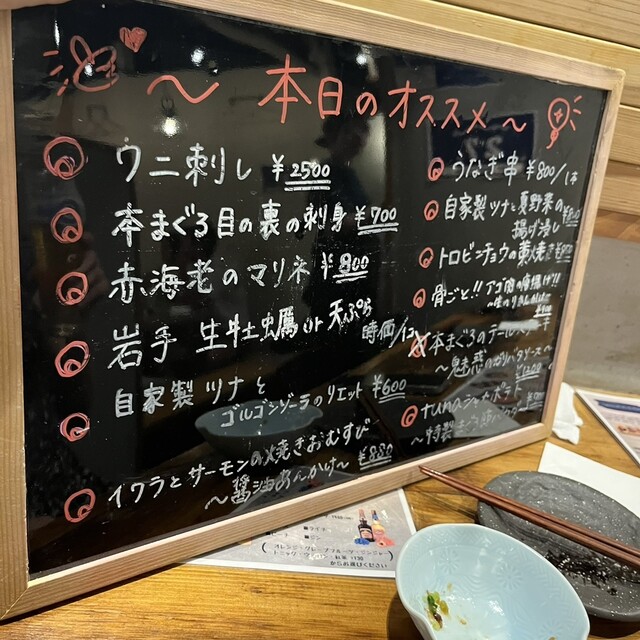 〜 本日のオススメ 〜
ウニ刺し ¥2500
本まぐろ目の裏の刺身 ¥700
赤海老のマリネ ¥800
岩手 生牡蠣 or 天ぷら
時価/1コ
自家製 ツナと
ゴルゴンゾーラのリエット ¥600
イクラとサーモンの焼きおむすび
〜醤油あんかけ〜 ¥880
うなぎ串 ¥800/1本
自家製ツナと夏野菜の
揚げ浸し
トロビンチョウの藁焼き
骨ごと!! アゴ肉の唐揚げ!!
本まぐろのテールステーキ
〜魅惑のガリバタソース〜
¥1200
tunaジャーポテト